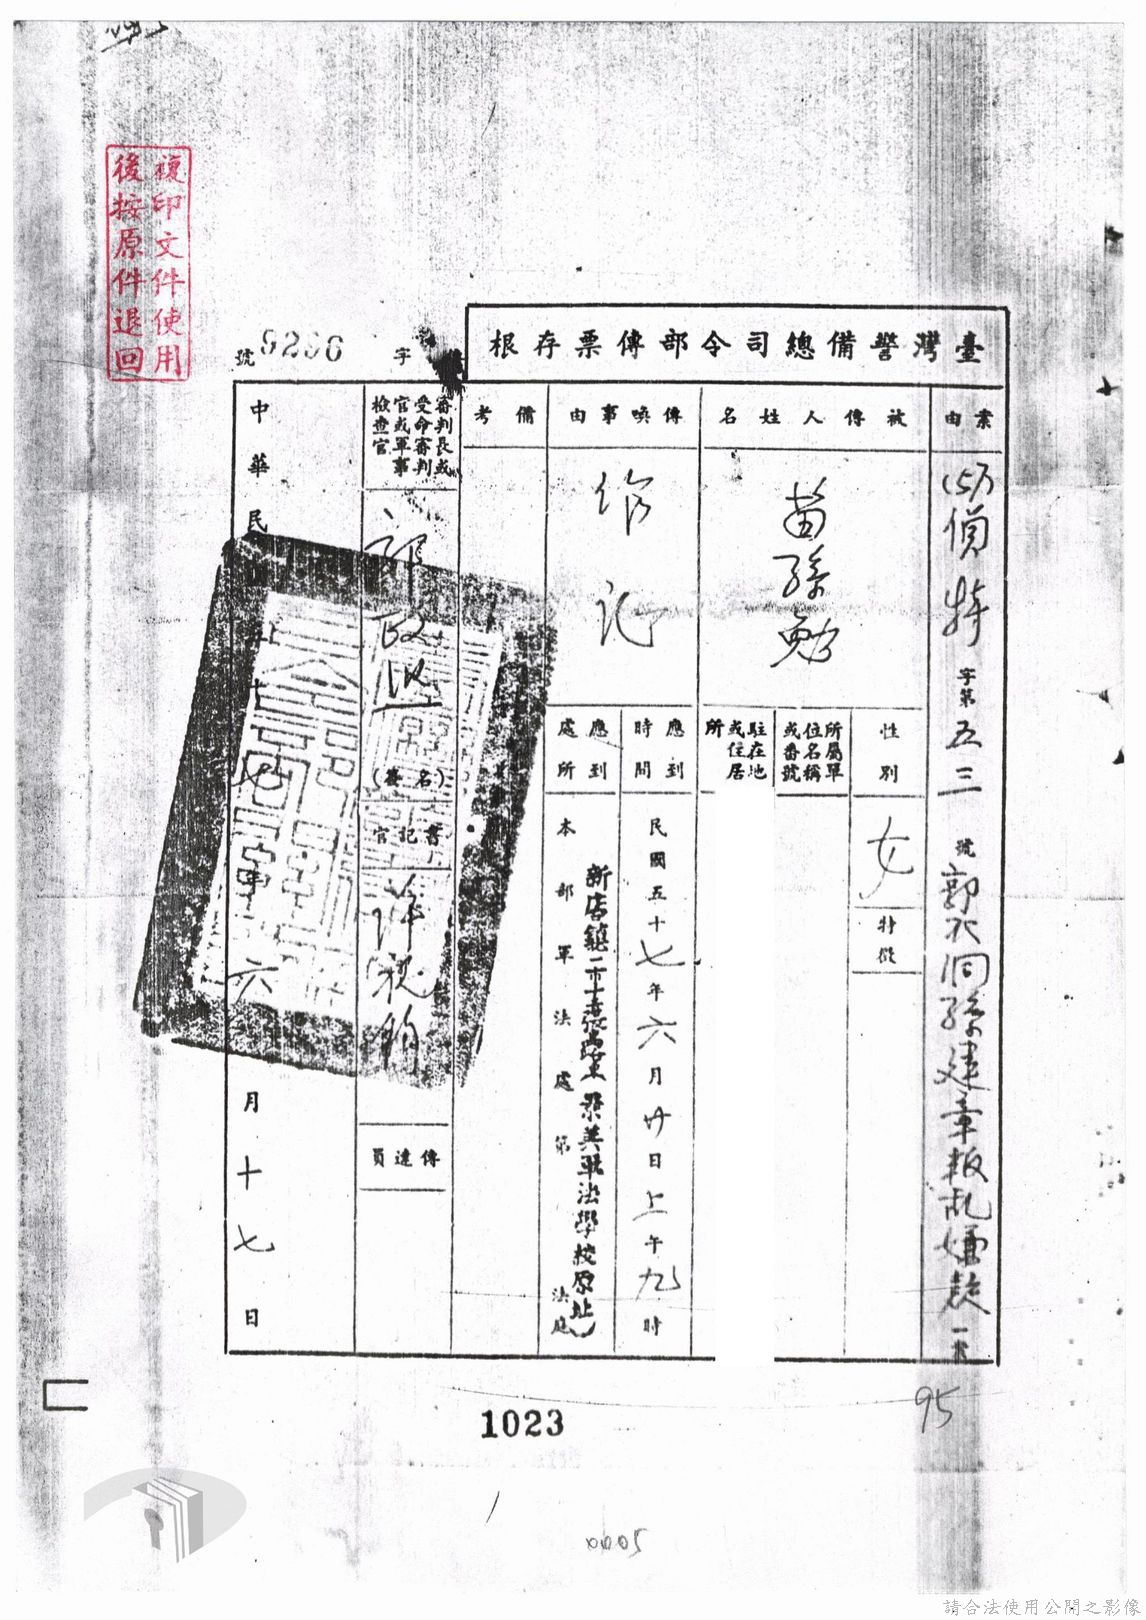 複印文件使用
後按原件退回
臺灣警備總司令部傳票存根
字
5286
號
案由
(57)偵特
字第
五三
號
郭衣洞孫建章叛乱嫌疑
一案
被傳人姓名
苗孫勉
性別
女
特徵
所屬單
位名稱
或番號
駐在地
或住居
所
傳喚事由
作記
應到
時間
民國五十七年六月廿日上午九時
應到
處所
新店鎮二十張路
景美軍法學校原址)
本部軍法處第
法庭
備考
審判長或
受命審判
官或軍事
檢查官
(簽名)
書記官
傳達員
中華民
五十七年六月十七日
95
1023
0005
請合法使用公開之影像